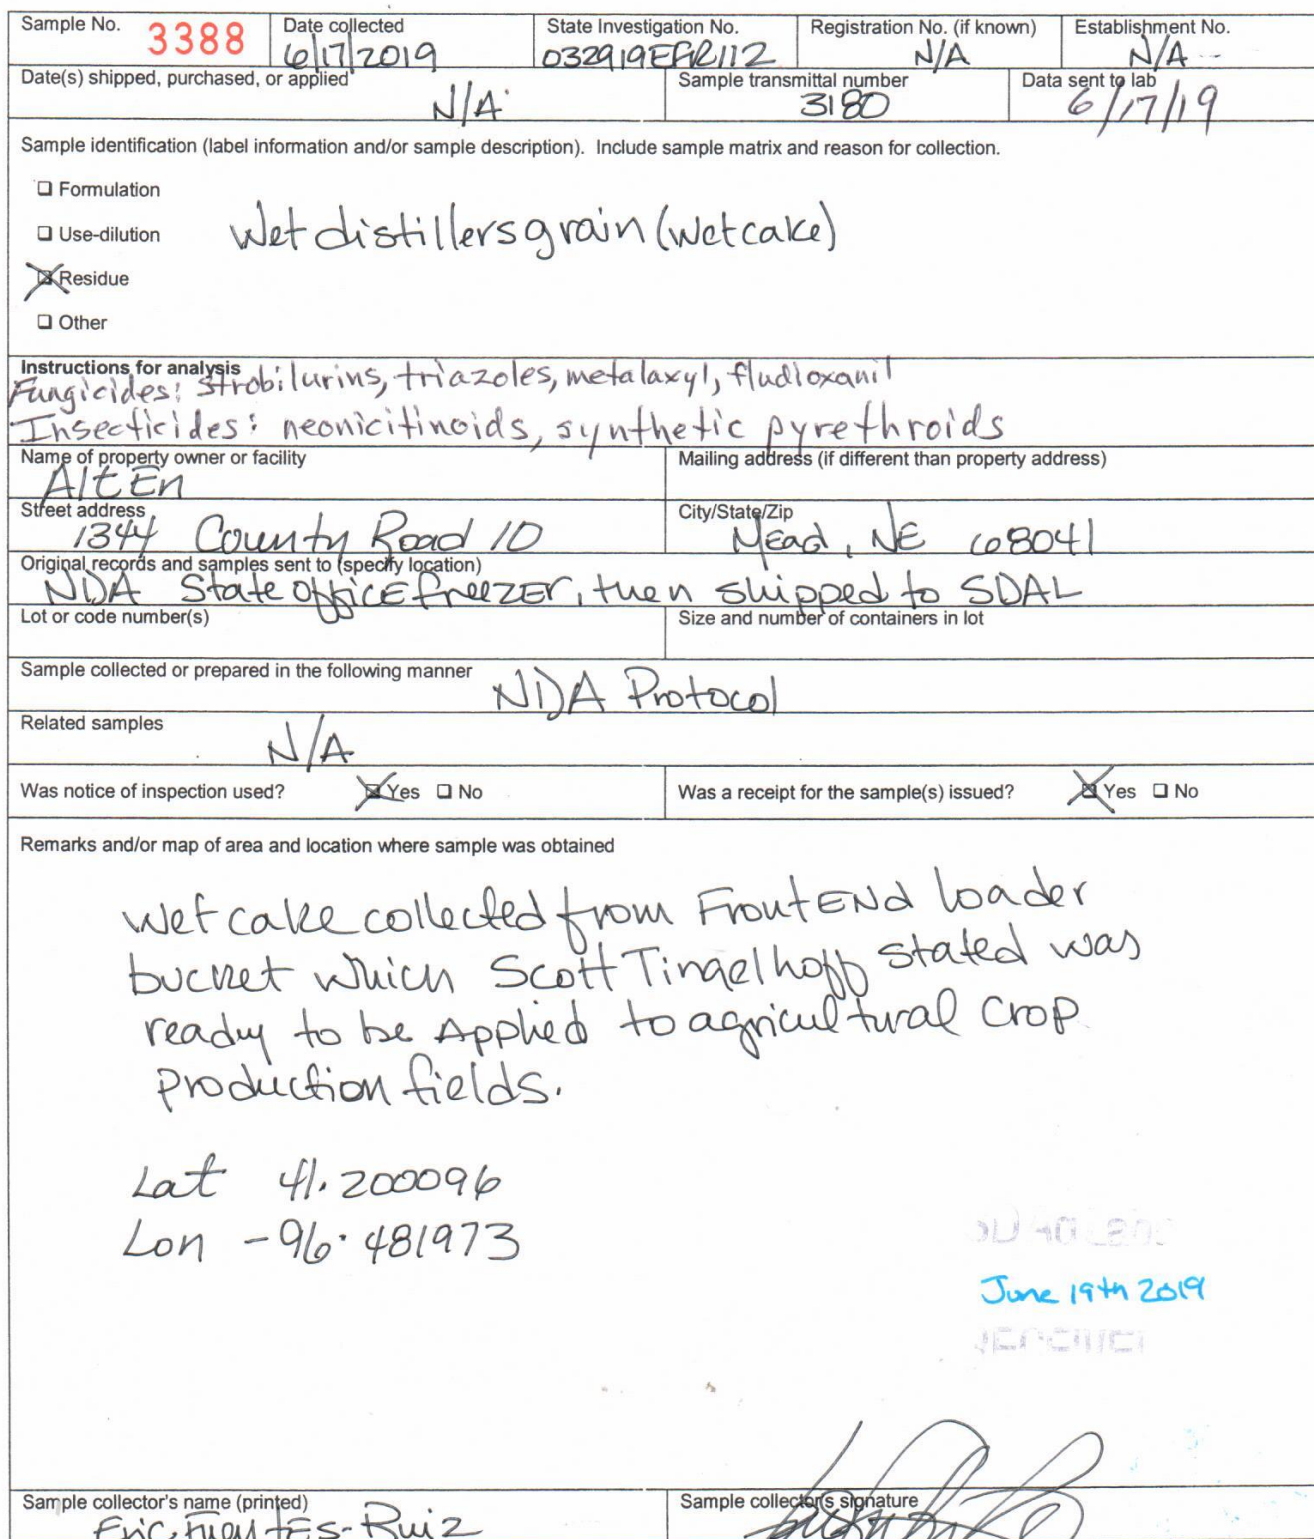 Sample No. 3388
Date collected 6/17/2019
State Investigation No. 032919EFR112
Registration No. (if known) N/A
Establishment No. N/A
Date(s) shipped, purchased, or applied N/A
Sample transmittal number 3180
Data sent to lab 6/17/19
Sample identification (label information and/or sample description). Include sample matrix and reason for collection.
Formulation
Use-dilution
Wet distillers grain (wetcake)
Residue
Other
Instructions for analysis
Fungicides: strobilurins, triazoles, metalaxyl, fludioxanil
Insecticides: neonicitinoids, synthetic pyrethroids
Name of property owner or facility AltEn
Mailing address (if different than property address)
Street address 1344 County Road 10
City/State/Zip Mead, NE 68041
Original records and samples sent to (specify location)
NDA State Office freezer, then shipped to SDAL
Lot or code number(s)
Size and number of containers in lot
Sample collected or prepared in the following manner NDA Protocol
Related samples N/A
Was notice of inspection used? Yes No
Was a receipt for the sample(s) issued? Yes No
Remarks and/or map of area and location where sample was obtained
Wet cake collected from Front End loader
bucket which Scott Tingelhoff stated was
ready to be Applied to agricultural crop
production fields.
Lat 41.200096
Lon -96.481973
June 19th 2019
Sample collector's name (printed) Eric Fuentes-Ruiz
Sample collector's signature